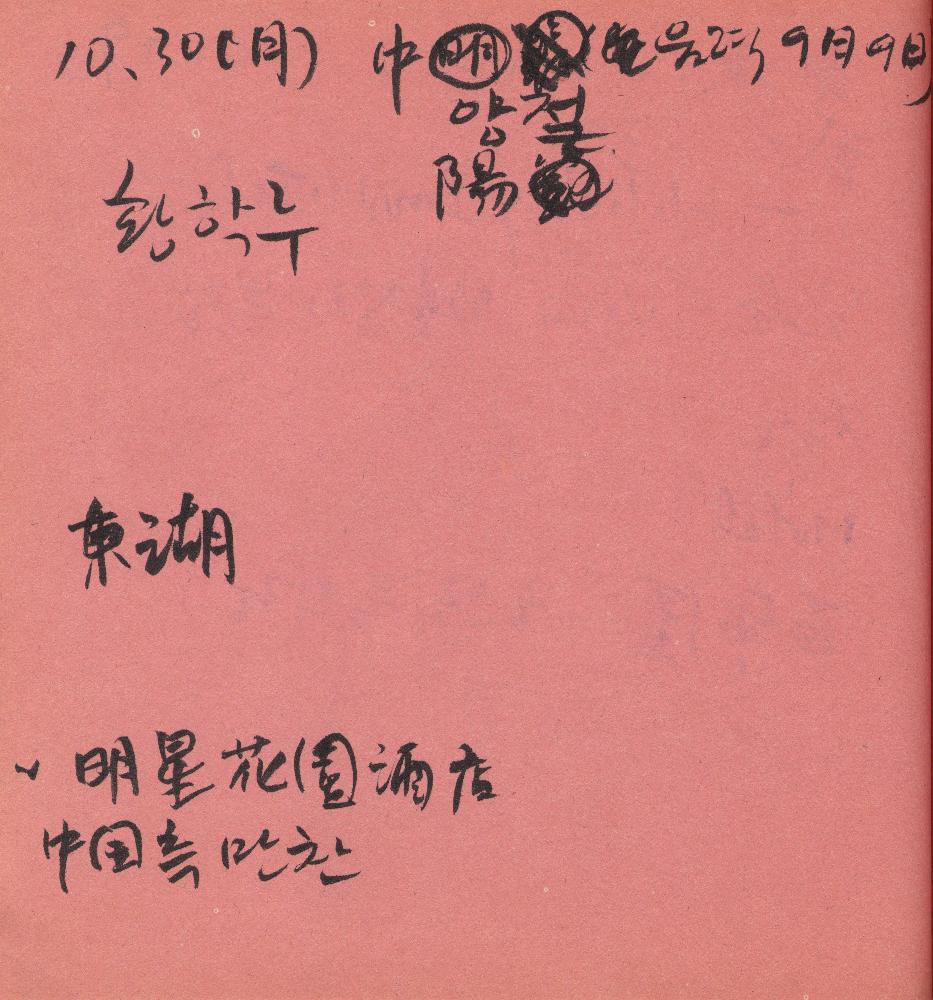 10.30(月) 中明 음력 9月9日)
양절
陽
황학루
東湖
✓ 明星花(園)酒店
中国측 만찬